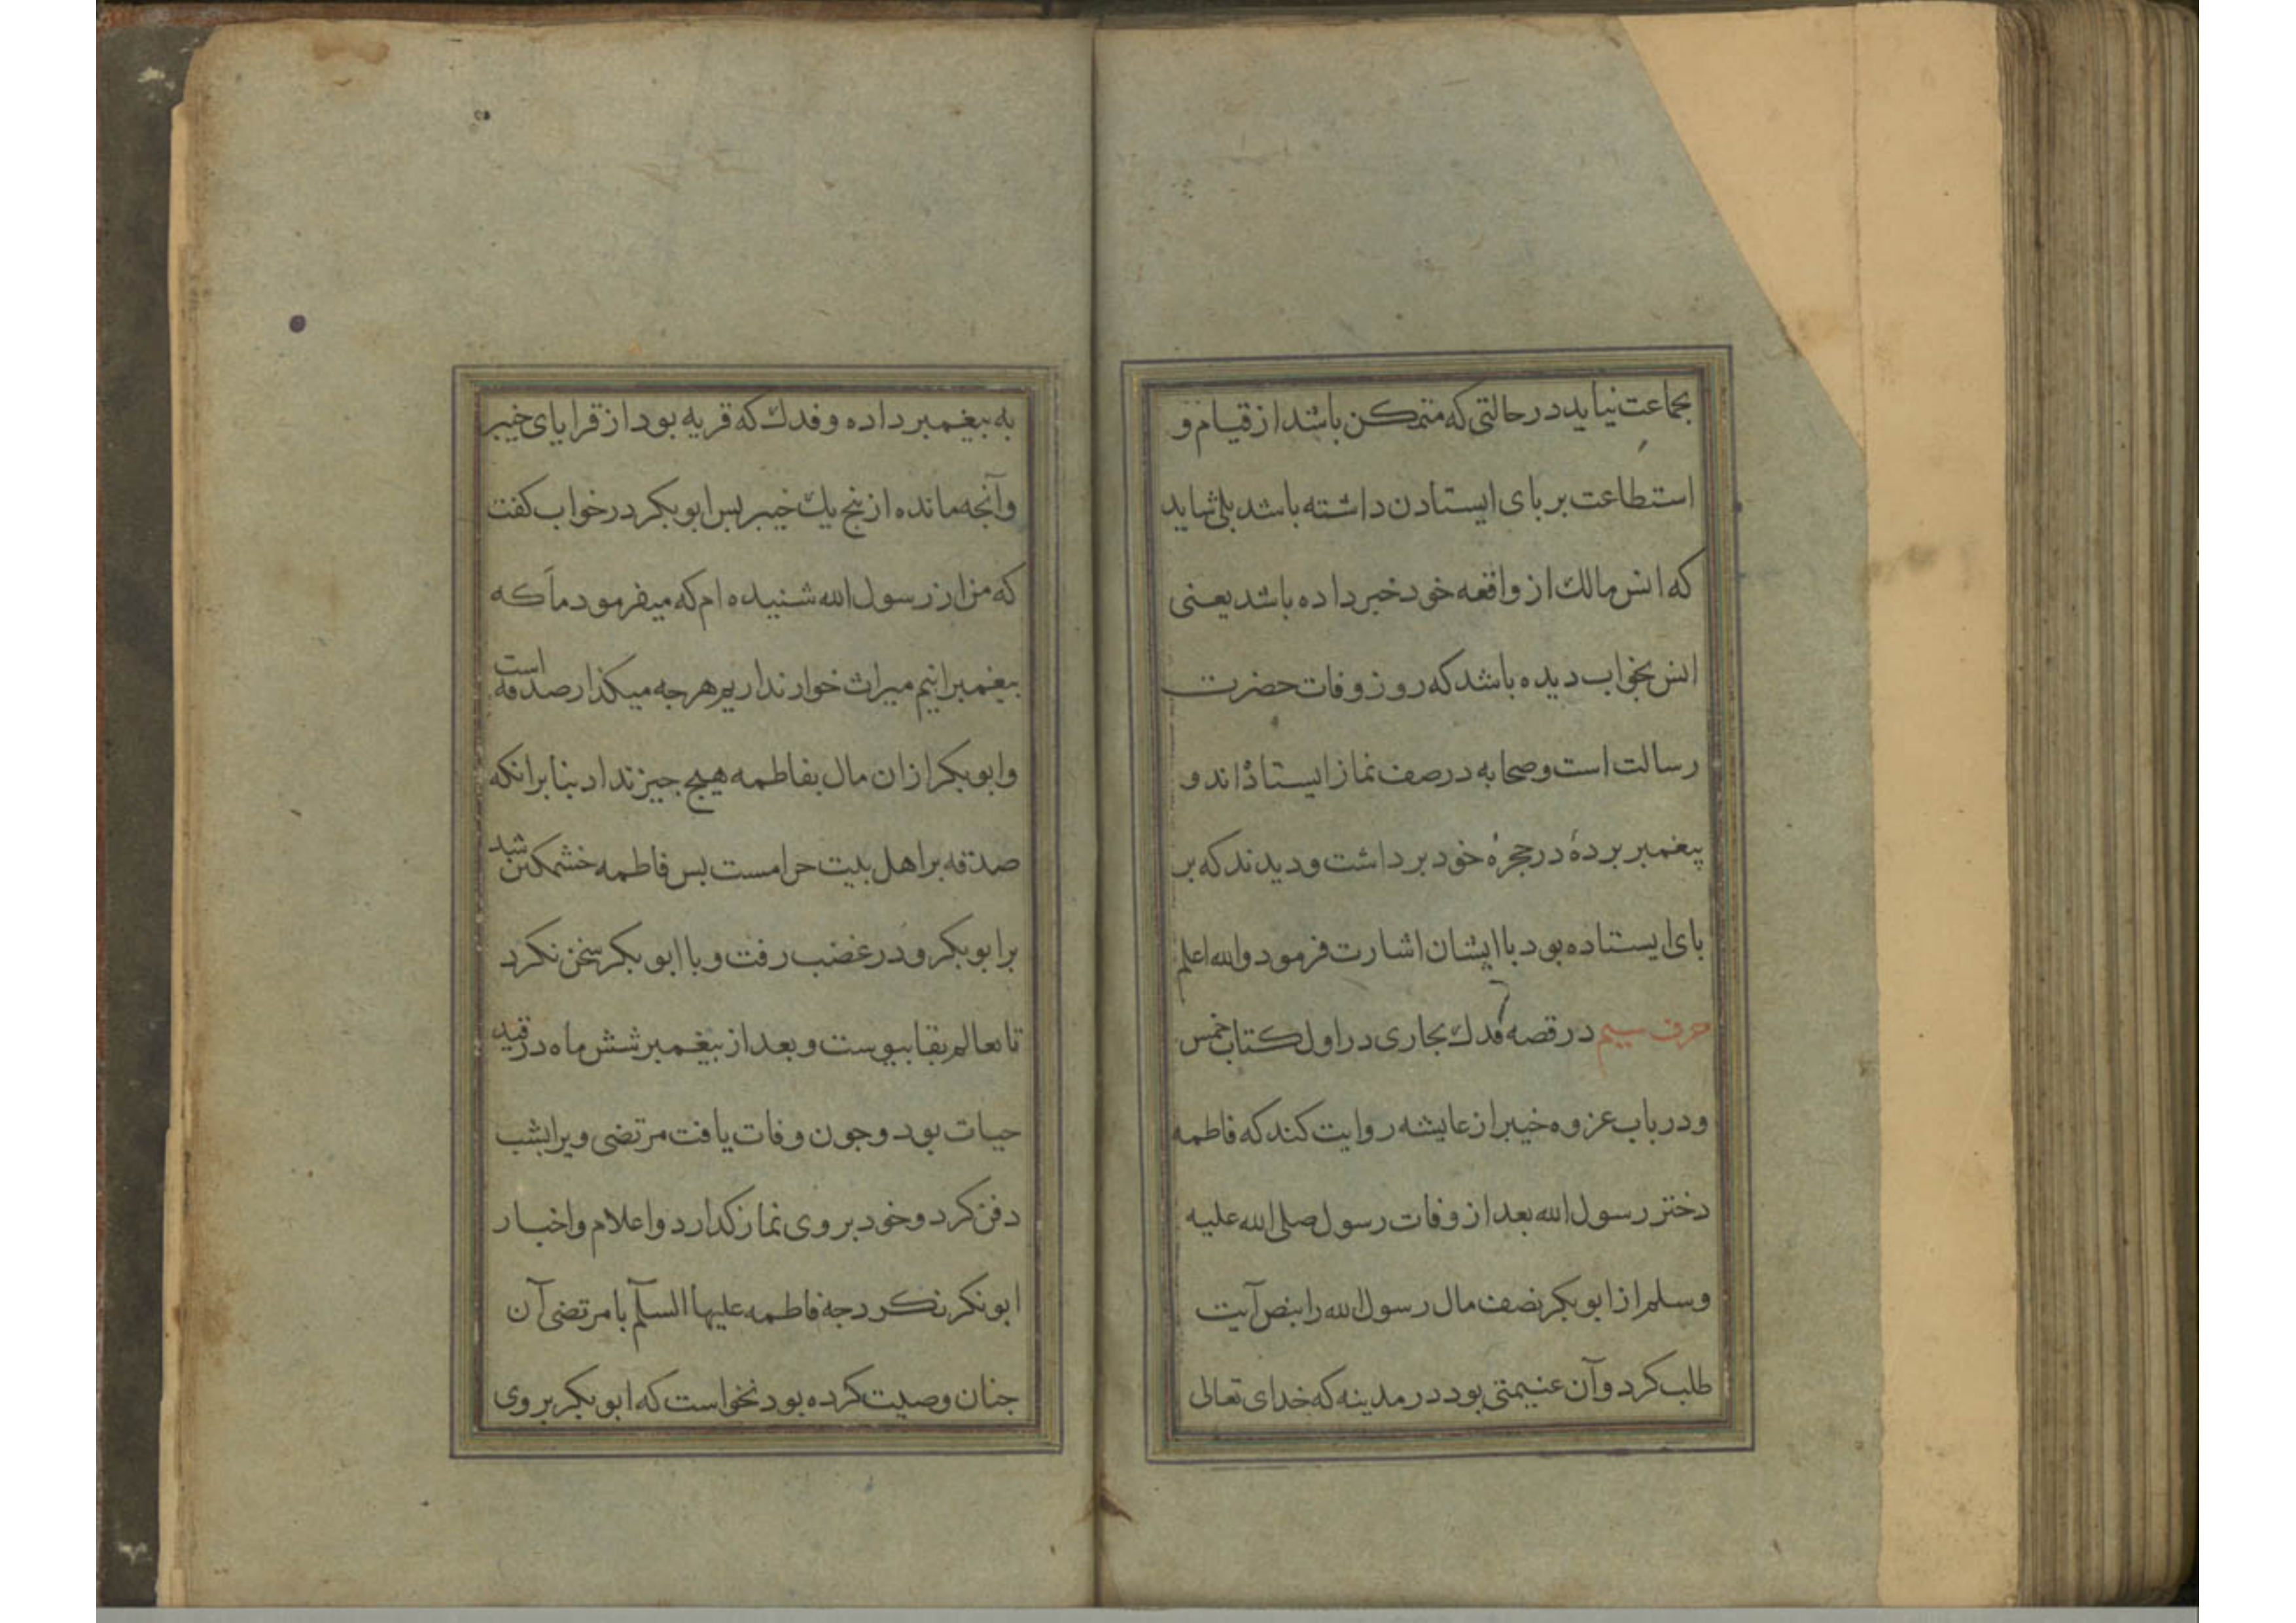 بجماعت نیاید در حالتی که متمکن باشد از قیام و
استطاعت بر بای ایستادن داشته باشد بلی شاید
که انس مالك از واقعه خود خبر داده باشد یعنی
انس بخواب دیده باشد که روز وفات حضرت
رسالت است و صحابه در صف نماز ایستاده‌اند و
پیغمبر بردهٔ در حجرهٔ خود برداشت و دیدند که بر
بای ایستاده بود با ایشان اشارت فرمود والله اعلم
حرف سیم در قصه فدك بخاری در اول کتاب خمس
و در باب غزوه خیبر از عایشه روایت کند که فاطمه
دختر رسول الله بعد از وفات رسول صلی الله علیه
وسلم از ابوبکر نصف مال رسول الله را بنص آیت
طلب کرد و آن غنیمتی بود در مدینه که خدای تعالی
به بیغمبر داده و فدك که قریه بود از قرایای خیبر
و آنجه مانده از بنج یك خیبر بس ابوبکر در خواب کفت
که من از رسول الله شنیده ام که میفرمود ما که
بیغمبرانیم میراث خوار نداریم هر جه میکذار صدقه است
و ابوبکر ازان مال بفاطمه هیج جیز نداد بنا برانکه
صدقه بر اهل بیت حرامست بس فاطمه خشمکین شد
بر ابوبکر و در غضب رفت و با ابوبکر سخن نکرد
تا بعالم بقا بیوست و بعد از بیغمبر شش ماه در قید
حیات بود و جون وفات یافت مرتضی ویرا بشب
دفن کرد و خود بر وی نماز کدارد و اعلام و اخبار
ابوبکر نکرد جه فاطمه علیها السلم با مرتضی آن
جنان وصیت کرده بود نخواست که ابوبکر بر وی